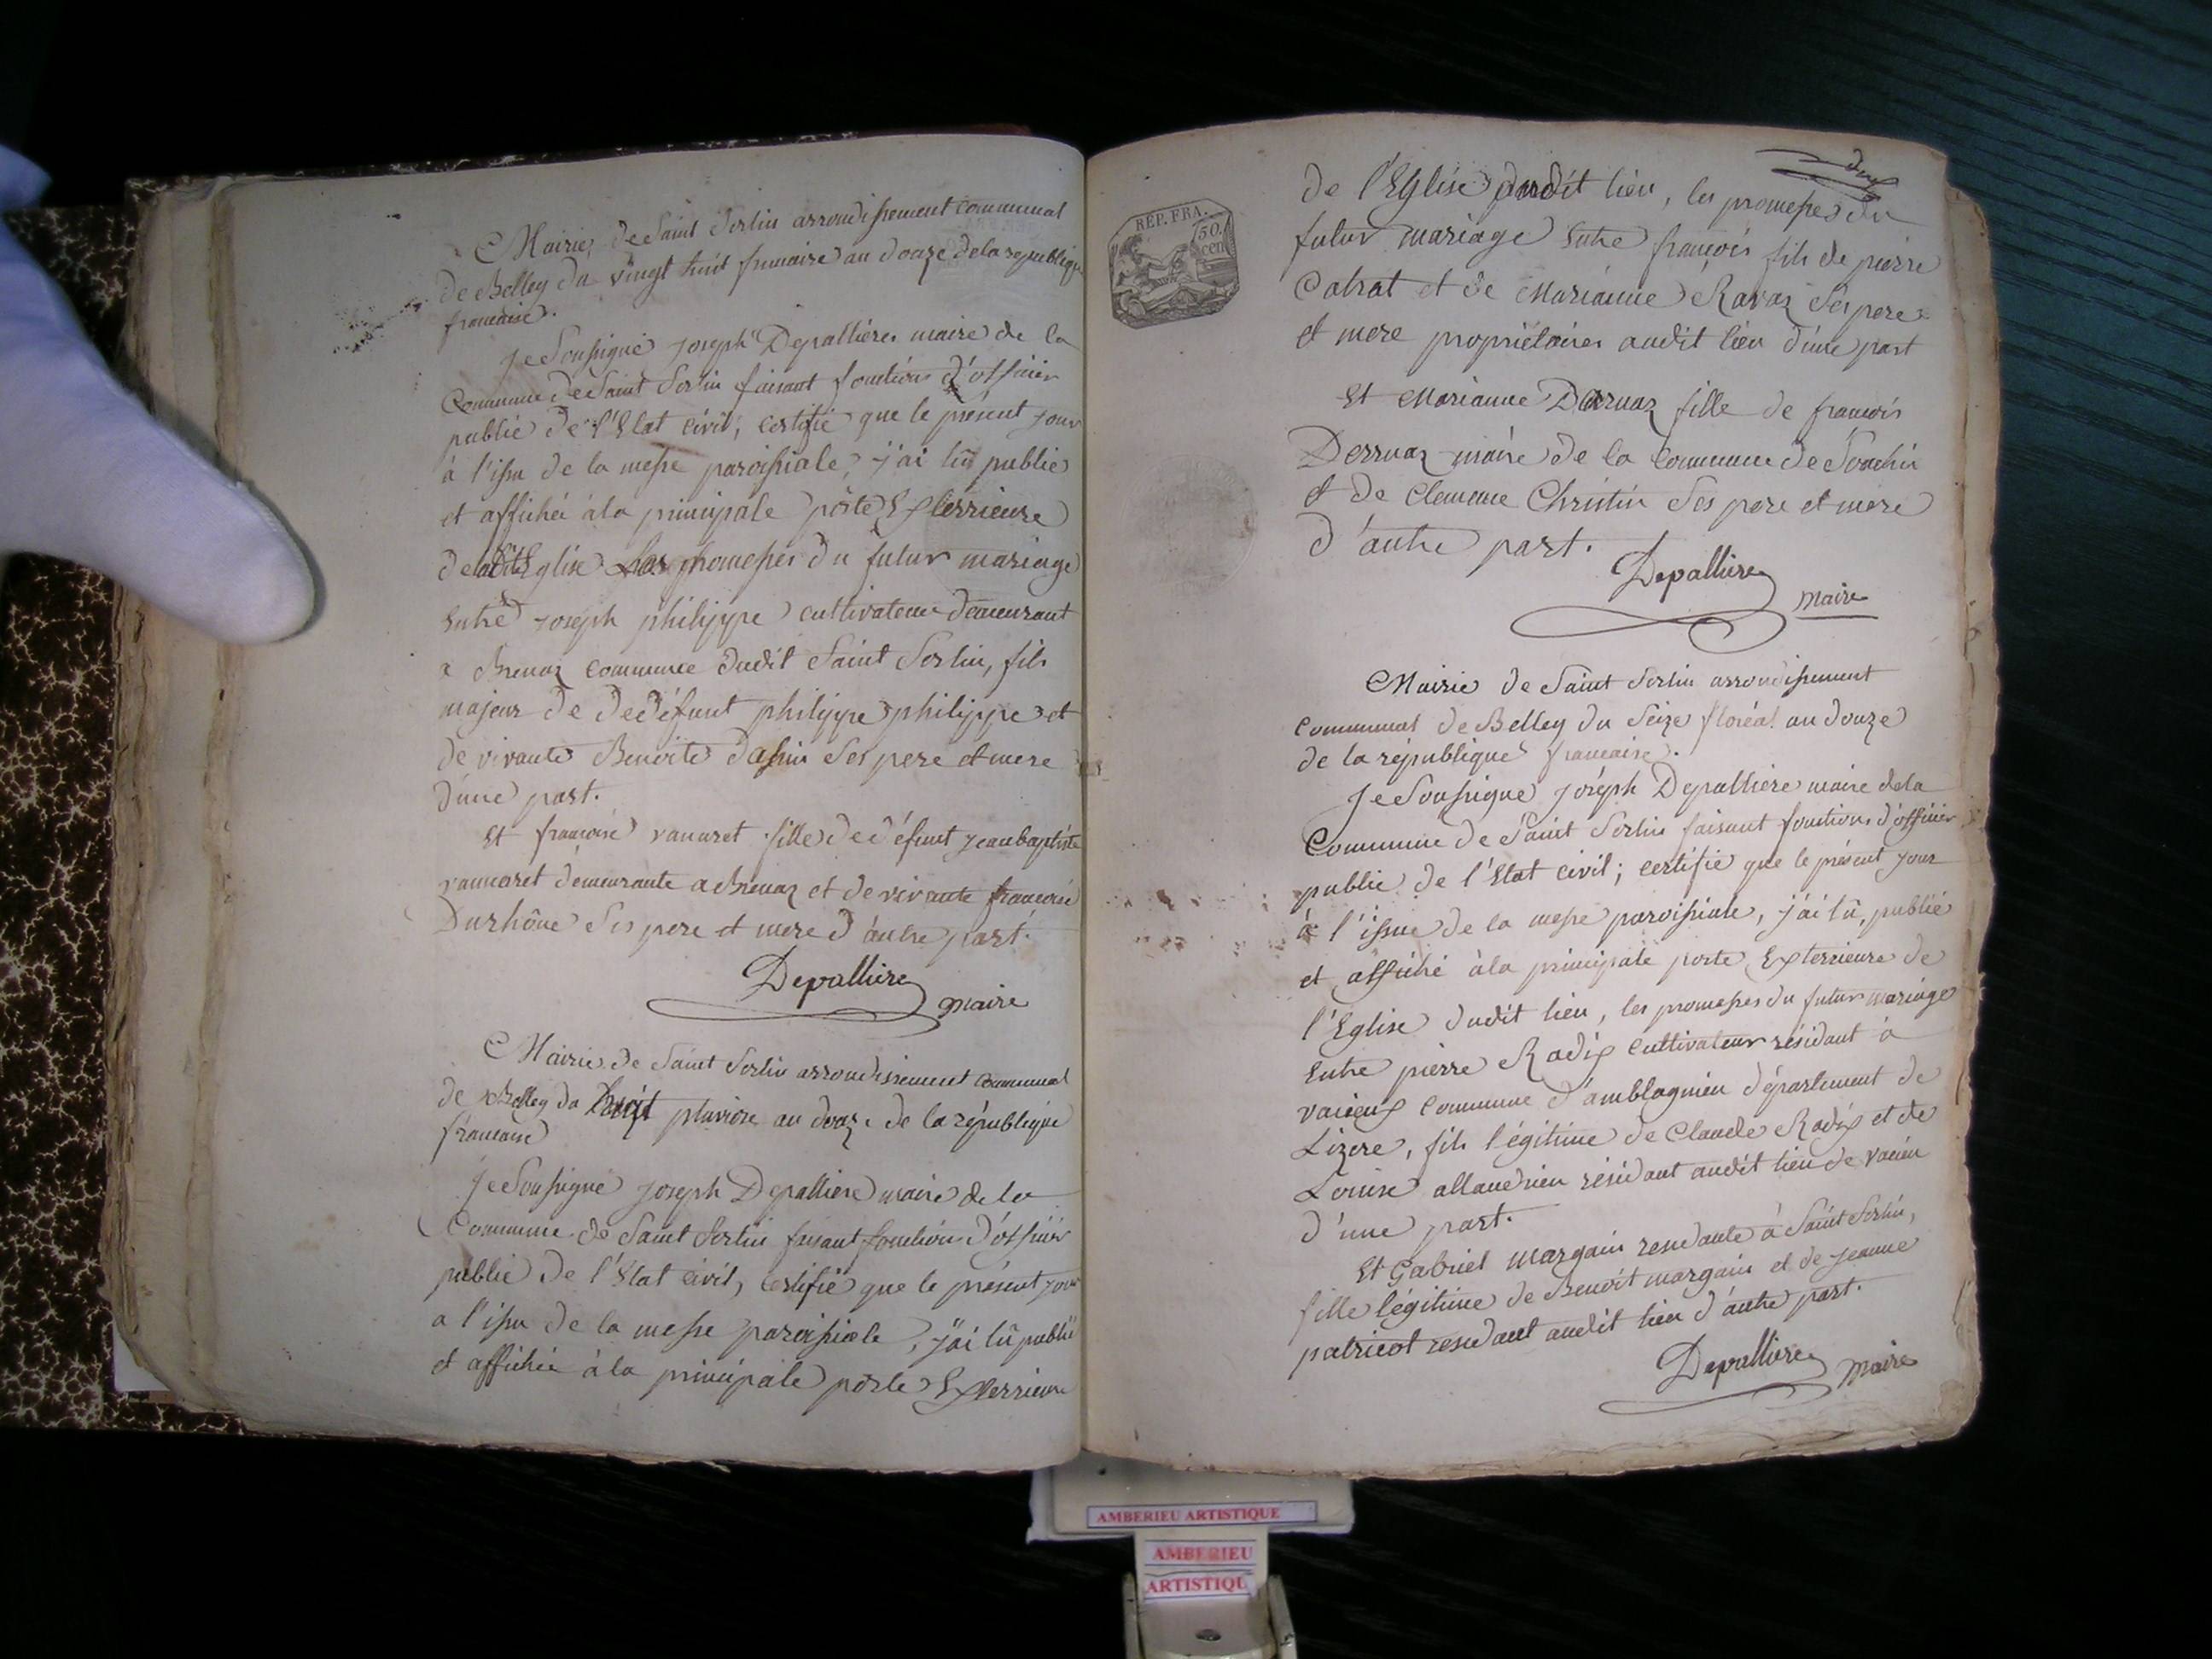 Mairie de Saint Sorlin arrondissement communal
de Belley du vingt huit frimaire an douze de la republique
francaise.
Je Soussigné Joseph Depallière maire de la
Commune de Saint Sorlin faisant fonctions d'officier
public de l'Etat civil, certifie que le présent jour
à l'issu de la messe paroissiale, j'ai lû publié
et affichée à la principale porte Exterrieure
de ladite Eglise Les promesses du futur mariage
Entre Joseph philippe cultivateur demeurant
a Brenaz commune dudit Saint Sorlin, fils
majeur de de défunt philippe philippe et
de vivante Benoite Ses pere et mere
d'une part.
Et francoise vanaret fille de défunt Jean baptiste
vannaret demeurante a Brenaz et de vivante francoise
Durhône Ses pere et mere d'autre part.
Depalliere
maire
Mairie de Saint Sorlin arrondissement communal
de Belley du huit pluviose an douze de la république
francaise
Je Soussigné Joseph Depallière maire de la
Commune de Saint Sorlin faisant fonction d'officier
public de l'Etat civil, certifie que le présent jour
a l'issu de la messe paroissiale, j'ai lû publié
et affichée à la principale porte Exterrieure
REP. FRA.
50.
cen
de l'Eglise dudit lieu, les promesses du
futur mariage Entre françois fils de pierre
Cabrat et de Marianne Ravaz Ses pere
et mere propriétaires audit lieu d'une part
Et Marianne Darnaz fille de francois
Dernaz maire de la Commune de Souclin
et de Clemence Christin Ses pere et mere
d'autre part.
Depalliere
maire
Mairie de Saint Sorlin arrondissement
communal de Belley du Seize floréal an douze
de la république francaise.
Je Soussigné Joseph Depallière maire de la
Commune de Saint Sorlin faisant fonctions d'officier
public de l'Etat civil; certifie que le présent jour
à l'issue de la messe paroissiale, j'ai lû, publié
et affiché à la principale porte Exterrieure de
l'Eglise dudit lieu, les promesses du futur mariage
Entre pierre Radix cultivateur résidant à
varieux commune d'amblagnieu département de
Lizere, fils légitime de Claude Radix et de
Louise allandrieu résidant audit lieu de
d'une part.
Et Gabriel margain residante à Saint Sorlin,
fille légitime de Benoit margain et de jeanne
patricot residant audit lieu d'autre part.
Depalliere
maire
AMBERIEU ARTISTIQUE
AMBERIEU
ARTISTIQU